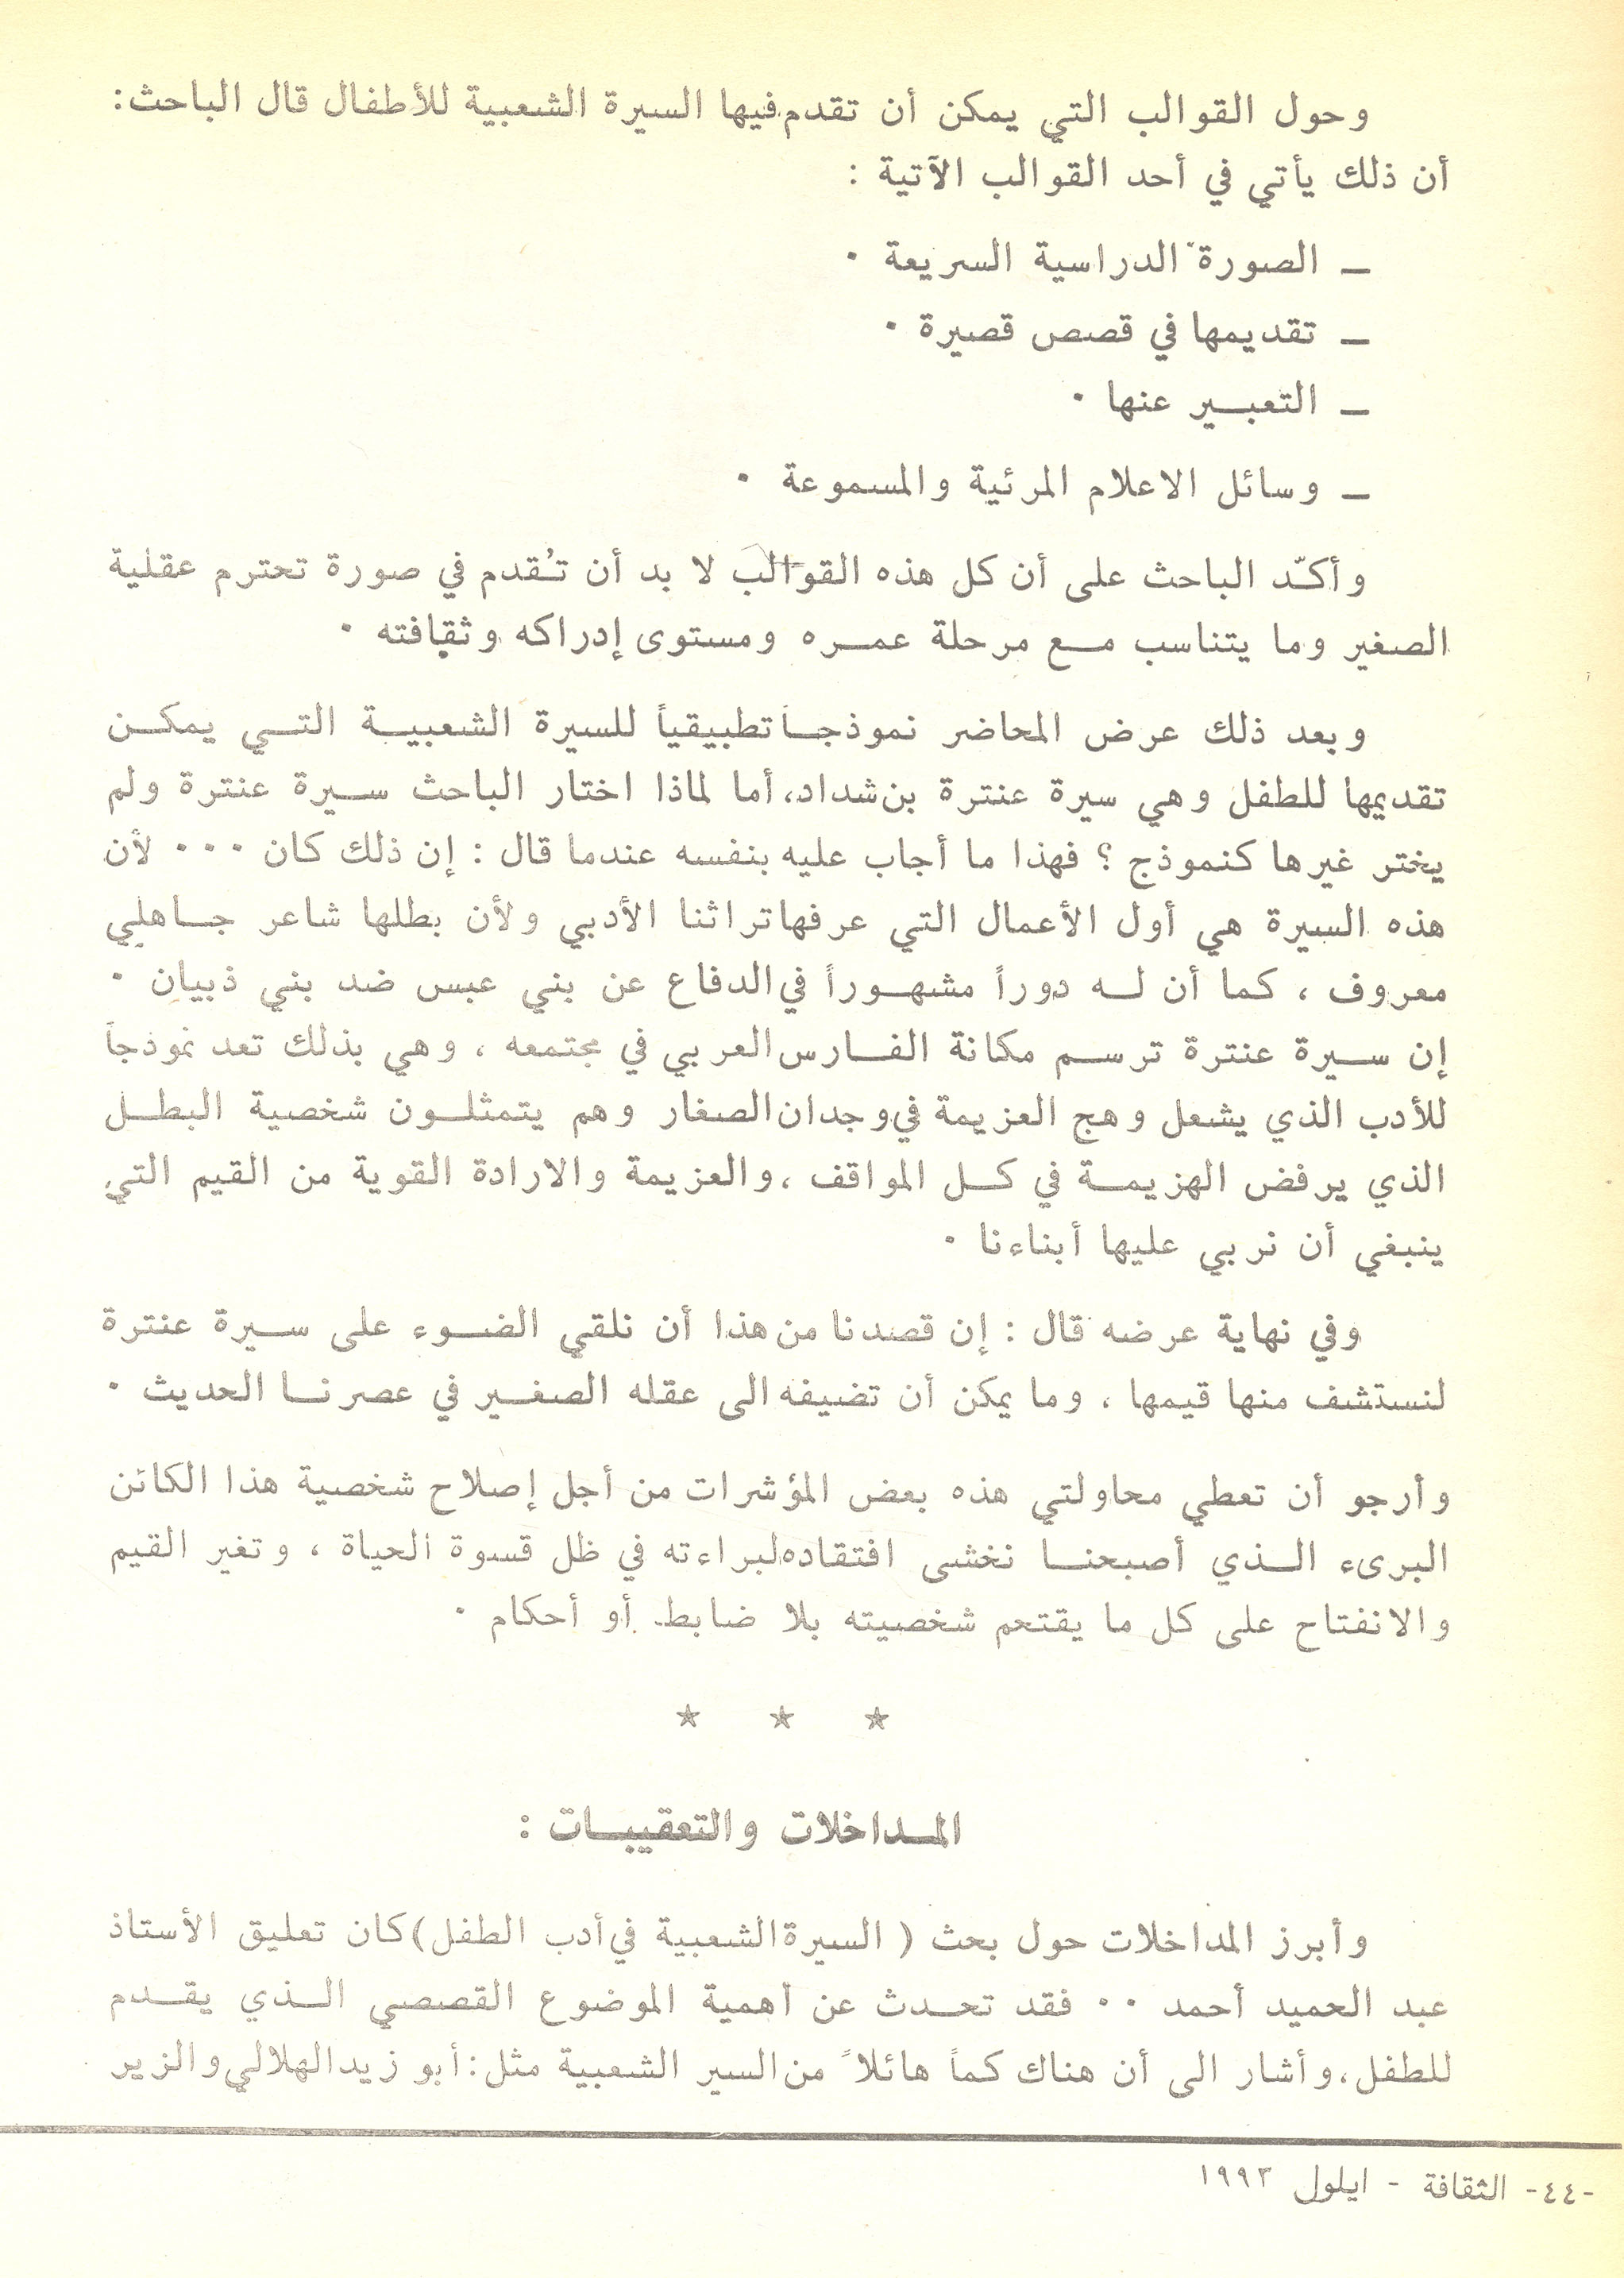 وحول القوالب التي يمكن أن تقدم فيها السيرة الشعبية للأطفال قال الباحث:
أن ذلك يأتي في أحد القوالب الآتية :
ـ الصورة الدراسية السريعة ٠
ـ تقديمها في قصص قصيرة ٠
ـ التعبـــير عنها ٠
ـ وسائل الاعلام المرئية والمسموعة ٠
وأكـّد الباحث على أن كل هذه القوالب لا بد أن تـُقدم في صورة تحترم عقلية
الصغير وما يتناسب مـــع مرحلة عمـــره ومستوى إدراكه وثقافته ٠
وبعد ذلك عرض المحاضر نموذجـــاً تطبيقياً للسيرة الشعبيـــة التـــي يمكـــن
تقديمها للطفل وهي سيرة عنترة بن شداد، أما لماذا اختار الباحث ســـيرة عنترة ولم
يختر غيرها كنموذج ؟ فهذا ما أجاب عليه بنفسه عندما قال : إن ذلك كان ٠٠٠ لأن
هذه السيرة هي أول الأعمال التي عرفها تراثنا الأدبي ولأن بطلها شاعر جـــاهلي
معروف ، كما أن لـــه دوراً مشهـــوراً في الدفاع عن بني عبس ضد بني ذبيان ٠
إن ســـيرة عنترة ترســـم مكانة الفـــارس العربي في مجتمعه ، وهي بذلك تعد نموذجاً
للأدب الذي يشعل وهج العزيمة في وجدان الصغار وهم يتمثلـــون شخصية البطـــل
الذي يرفض الهزيمـــة في كـــل المواقف ، والعزيمة والارادة القوية من القيم التي
ينبغي أن نربي عليها أبناءنا ٠
وفي نهاية عرضه قال : إن قصدنا من هذا أن نلقي الضـــوء على ســـيرة عنترة
لنستشف منها قيمها ، وما يمكن أن تضيفه الى عقله الصغـــير في عصرنـــا الحديث ٠
وأرجو أن تعطي محاولتي هذه بعض المؤشرات من أجل إصلاح شخصية هذا الكائن
البرىء الـــذي أصبحنـــا نخشى افتقاده لبراءته في ظل قسوة الحياة ، وتغير القيم
والانفتاح على كل ما يقتحم شخصيته بلا ضابط أو أحكام ٠
* * *
المـــداخلات والتعقيبـــات :
وأبرز المداخلات حول بحث ( السيرة الشعبية في أدب الطفل) كان تعليق الأستاذ
عبد الحميد أحمد ٠٠ فقد تحـــدث عن أهمية الموضوع القصصي الـــذي يقـــدم
للطفل، وأشار الى أن هناك كماً هائلاً من السير الشعبية مثل: أبو زيد الهلالي والزير
-٤٤- الثقافة - ايلول ١٩٩٣